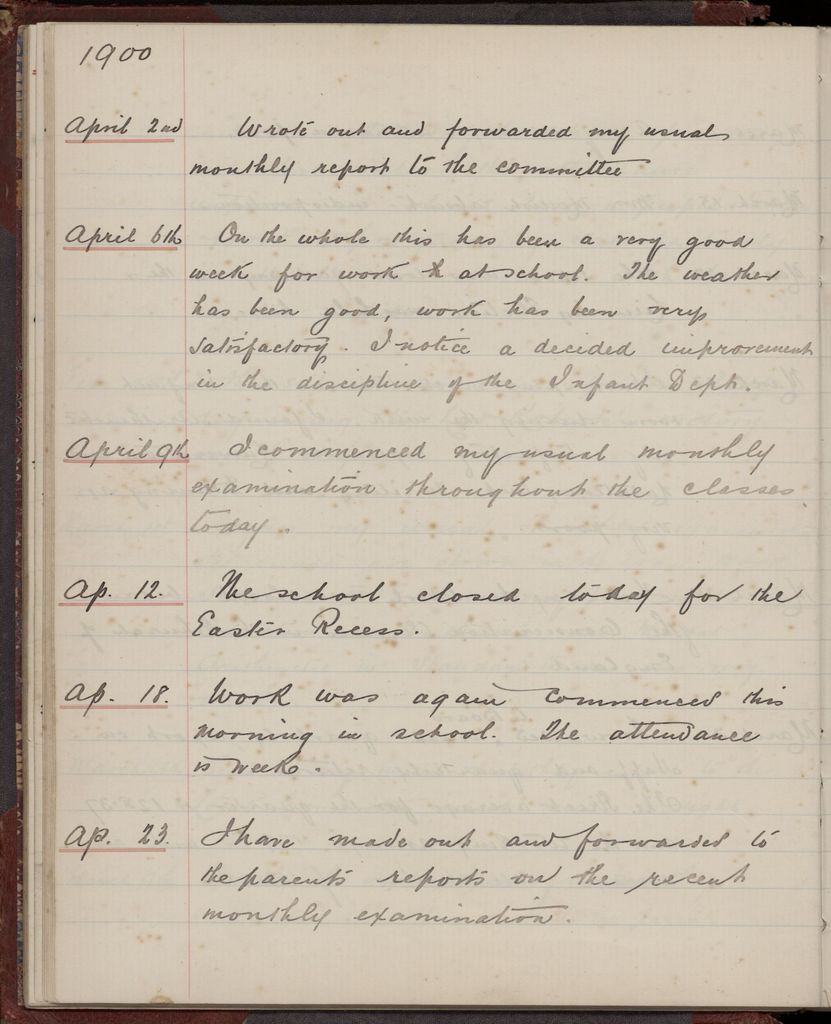 1900
April 2nd Wrote out and forwarded my usual
monthly report to the committee
April 6th On the whole this has been a very good
week for work at school. The weather
has been good, work has been very
satisfactory. I notice a decided improvement
in the discipline of the Infant Dept.
April 9th I commenced my usual monthly
examination throughout the classes
today.
Ap. 12. The school closed today for the
Easter Recess.
Ap. 18. Work was again commenced this
morning in school. The attendance
is weak.
Ap. 23. I have made out and forwarded to
the parents reports on the recent
monthly examination.